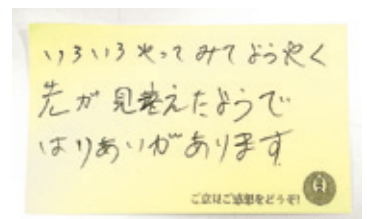 いろいろやってみてようやく
先が見えたようで
はりあいがあります
ご意見ご感想をどうぞ!